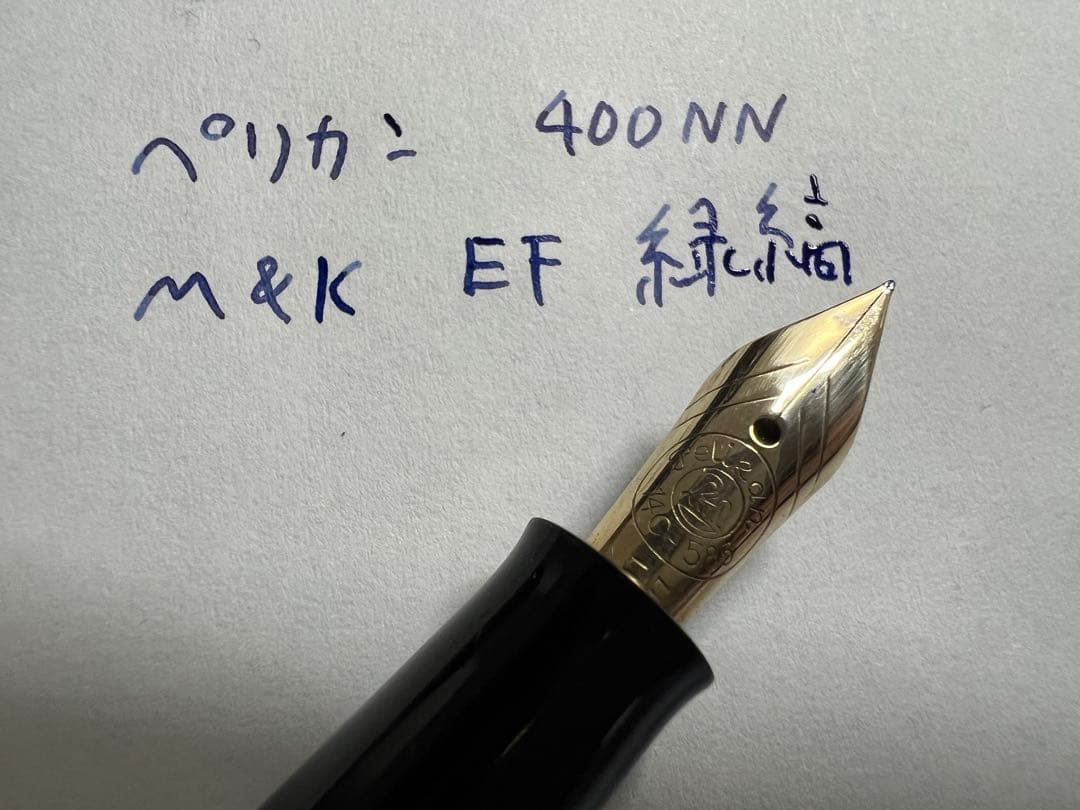 ペリカン 400NN
M&K EF 緑縞
Pelikan
14 CARAT
585